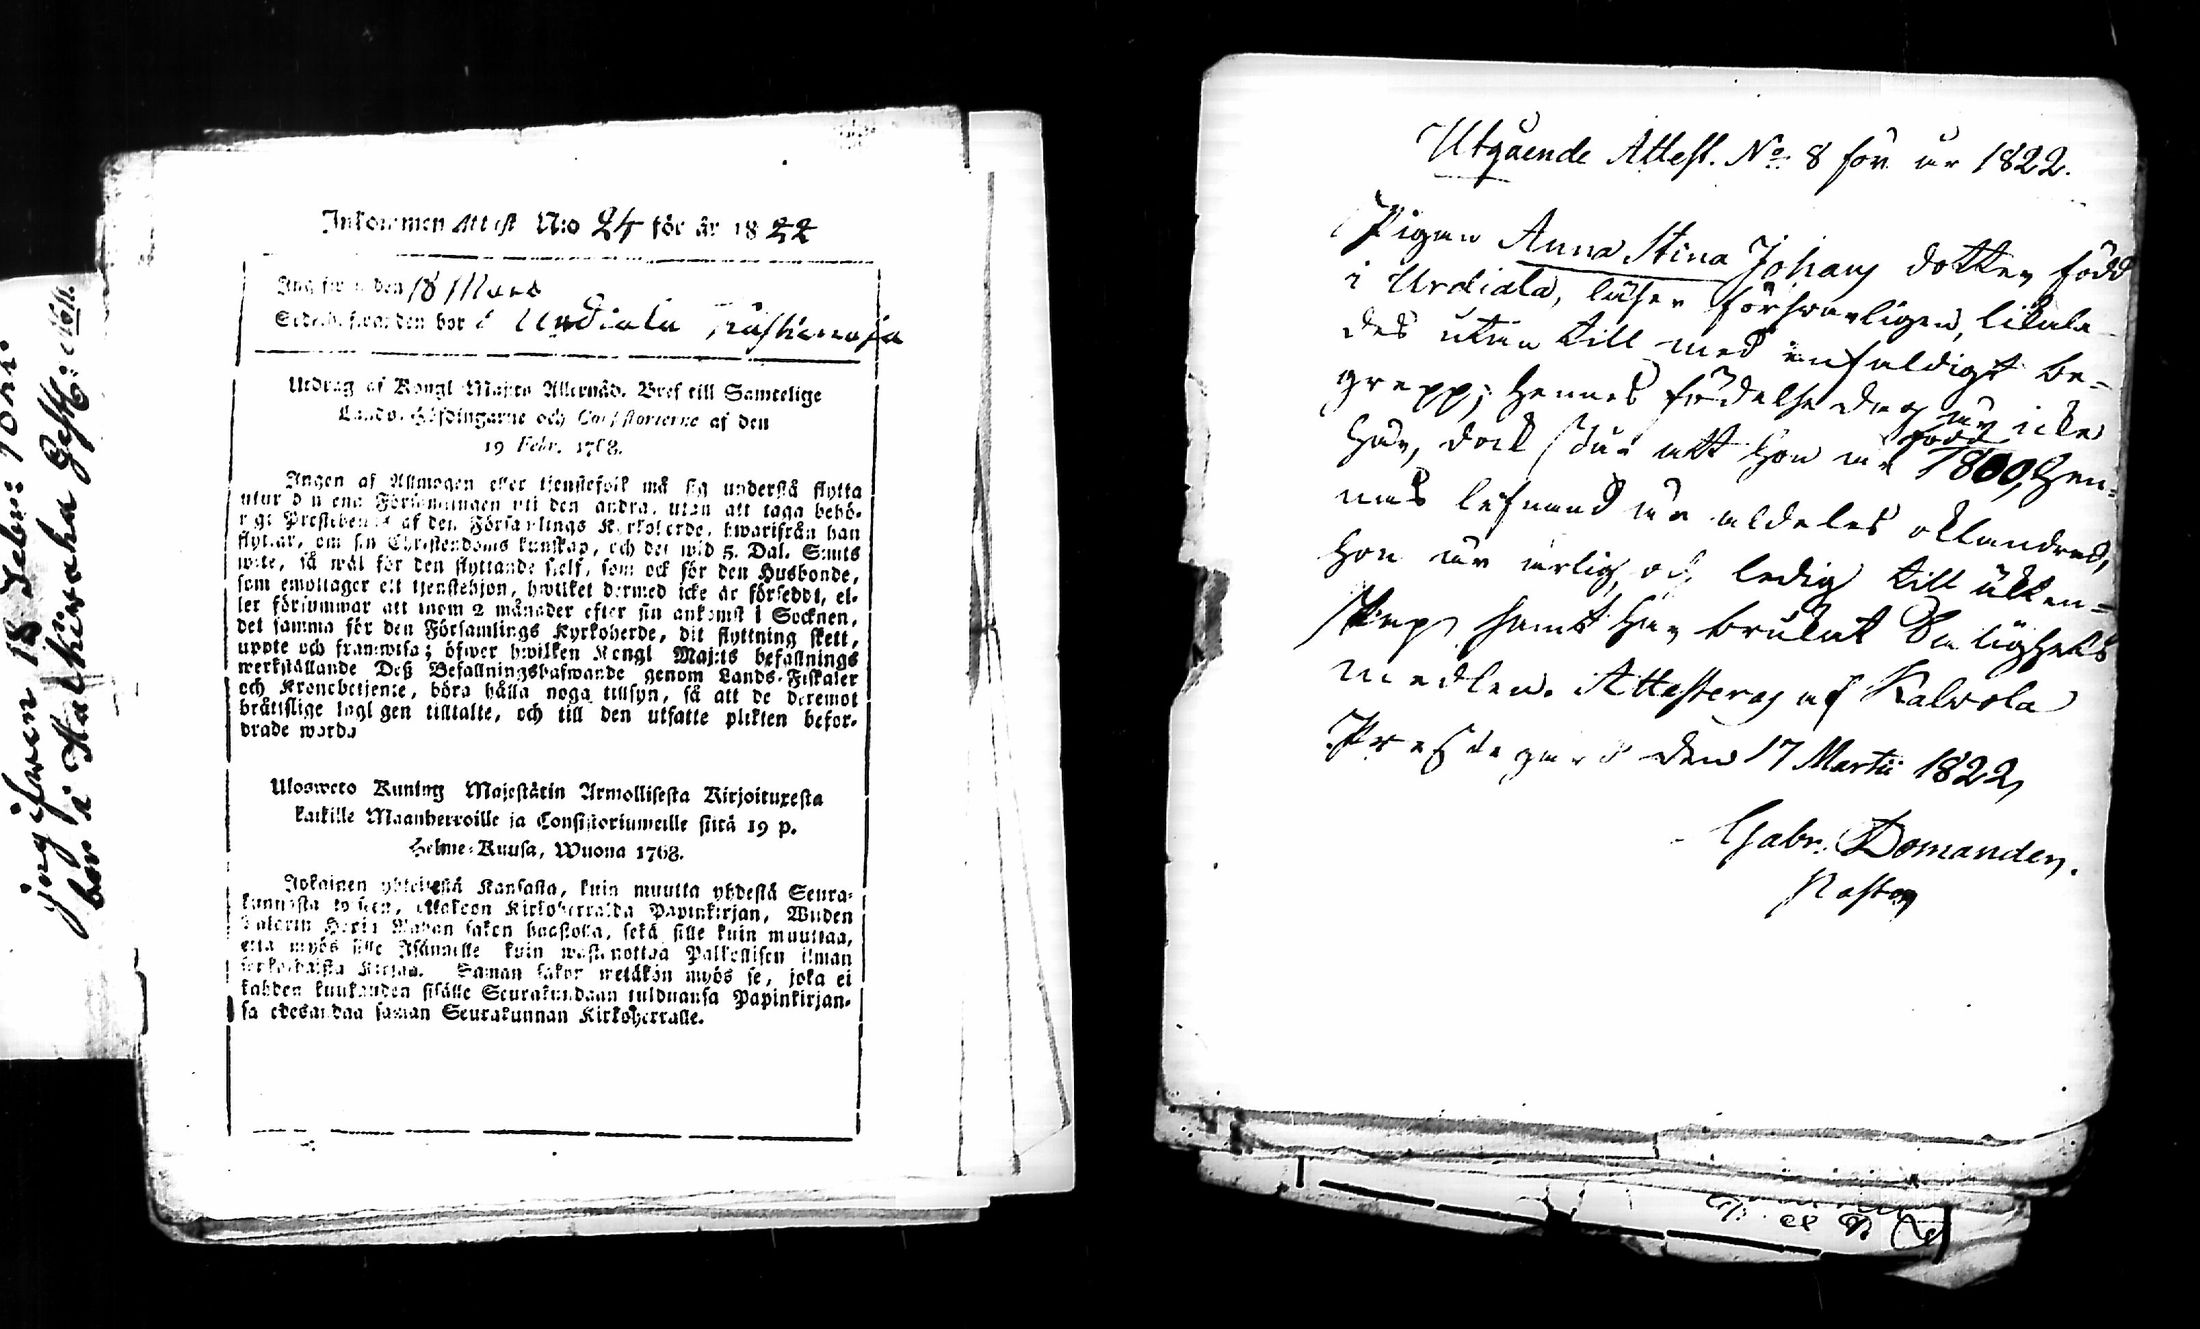 ingifwen 18 Febr:
bor i Kalkiwaha
Inkommen Attest N:o 24 för år 1822
Ingifwen den 18 Mars
Sedelhafwanden bor i Urdiala
Utdrag af Kongl Maj:ts Allernåd. Bref till Samtelige
Lands-Höfdingarne och Consistorierne af den
19 Febr. 1768.
Ingen af Allmogen eller tjenstefolk må sig understå flytta
utur den ena Församlingen uti den andra, utan att taga behö-
rigt Prestebewis af den Församlings Kyrkoherde, hwarifrån han
flyttar, om sin Christendoms kunskap, och det wid 5. Dal. S:mts
wite, så wäl för den flyttande sjelf, som ock för den Husbonde,
som emottager ett tjenstehjon, hwilket dermed icke är försedt, el-
ler försummar att inom 2 månader efter sin ankomst i Socknen,
det samma för den Församlings Kyrkoherde, dit flyttning skett,
uppte och framwisa; öfwer hwilken Kongl Maj:ts befallnings
werkställande Deß Befallningshafwande genom Lands-Fiskaler
och Kronobetjente, böra hålla noga tillsyn, så att de deremot
bråttslige lagligen tilltalte, och till den utsatte plikten befor-
drade warda
Ulosweto Kuning Majestätin Armollisesta Kirjoituxesta
kaikille Maanherroille ja Consistoriumeille siitä 19 p.
Helme-Kuusa, Wuona 1768.
Jokainen yhteisestä Kansasta, kuin muutta yhdestä Seura-
kunnasta toiseen, ottakoon Kirkoherralda Papinkirjan, Wiiden
Talarin Hopia Rahan sakon haastolla, sekä sille kuin muuttaa,
että myös sille Isännälle kuin wastanottaa Palkollisen ilman
Kirjaa. Saman sakon wetäkön myös se, joka ei
kahden kuukauden sisälle Seurakundaan tulduansa Papinkirjan-
sa edesandaa saman Seurakunnan Kirkoherralle.
Utgående Attest. No 8 för år 1822.
Pigan Anna Stina Johans dotter född
i Urdiala, läser försvarligen, likale-
des utan till med enfaldigt be-
grepp; Hennes födelse dag är icke
här, dock står att hon är född 1800, Hen-
nes lefnad är aldeles oklandrad,
hon är ärlig, och ledig till ächten-
skap samt har brukat Salighets
medlen. Attesteras af Kalvola
Prestegård den 17 Martii 1822,
Gabr. Domander.
Pastor